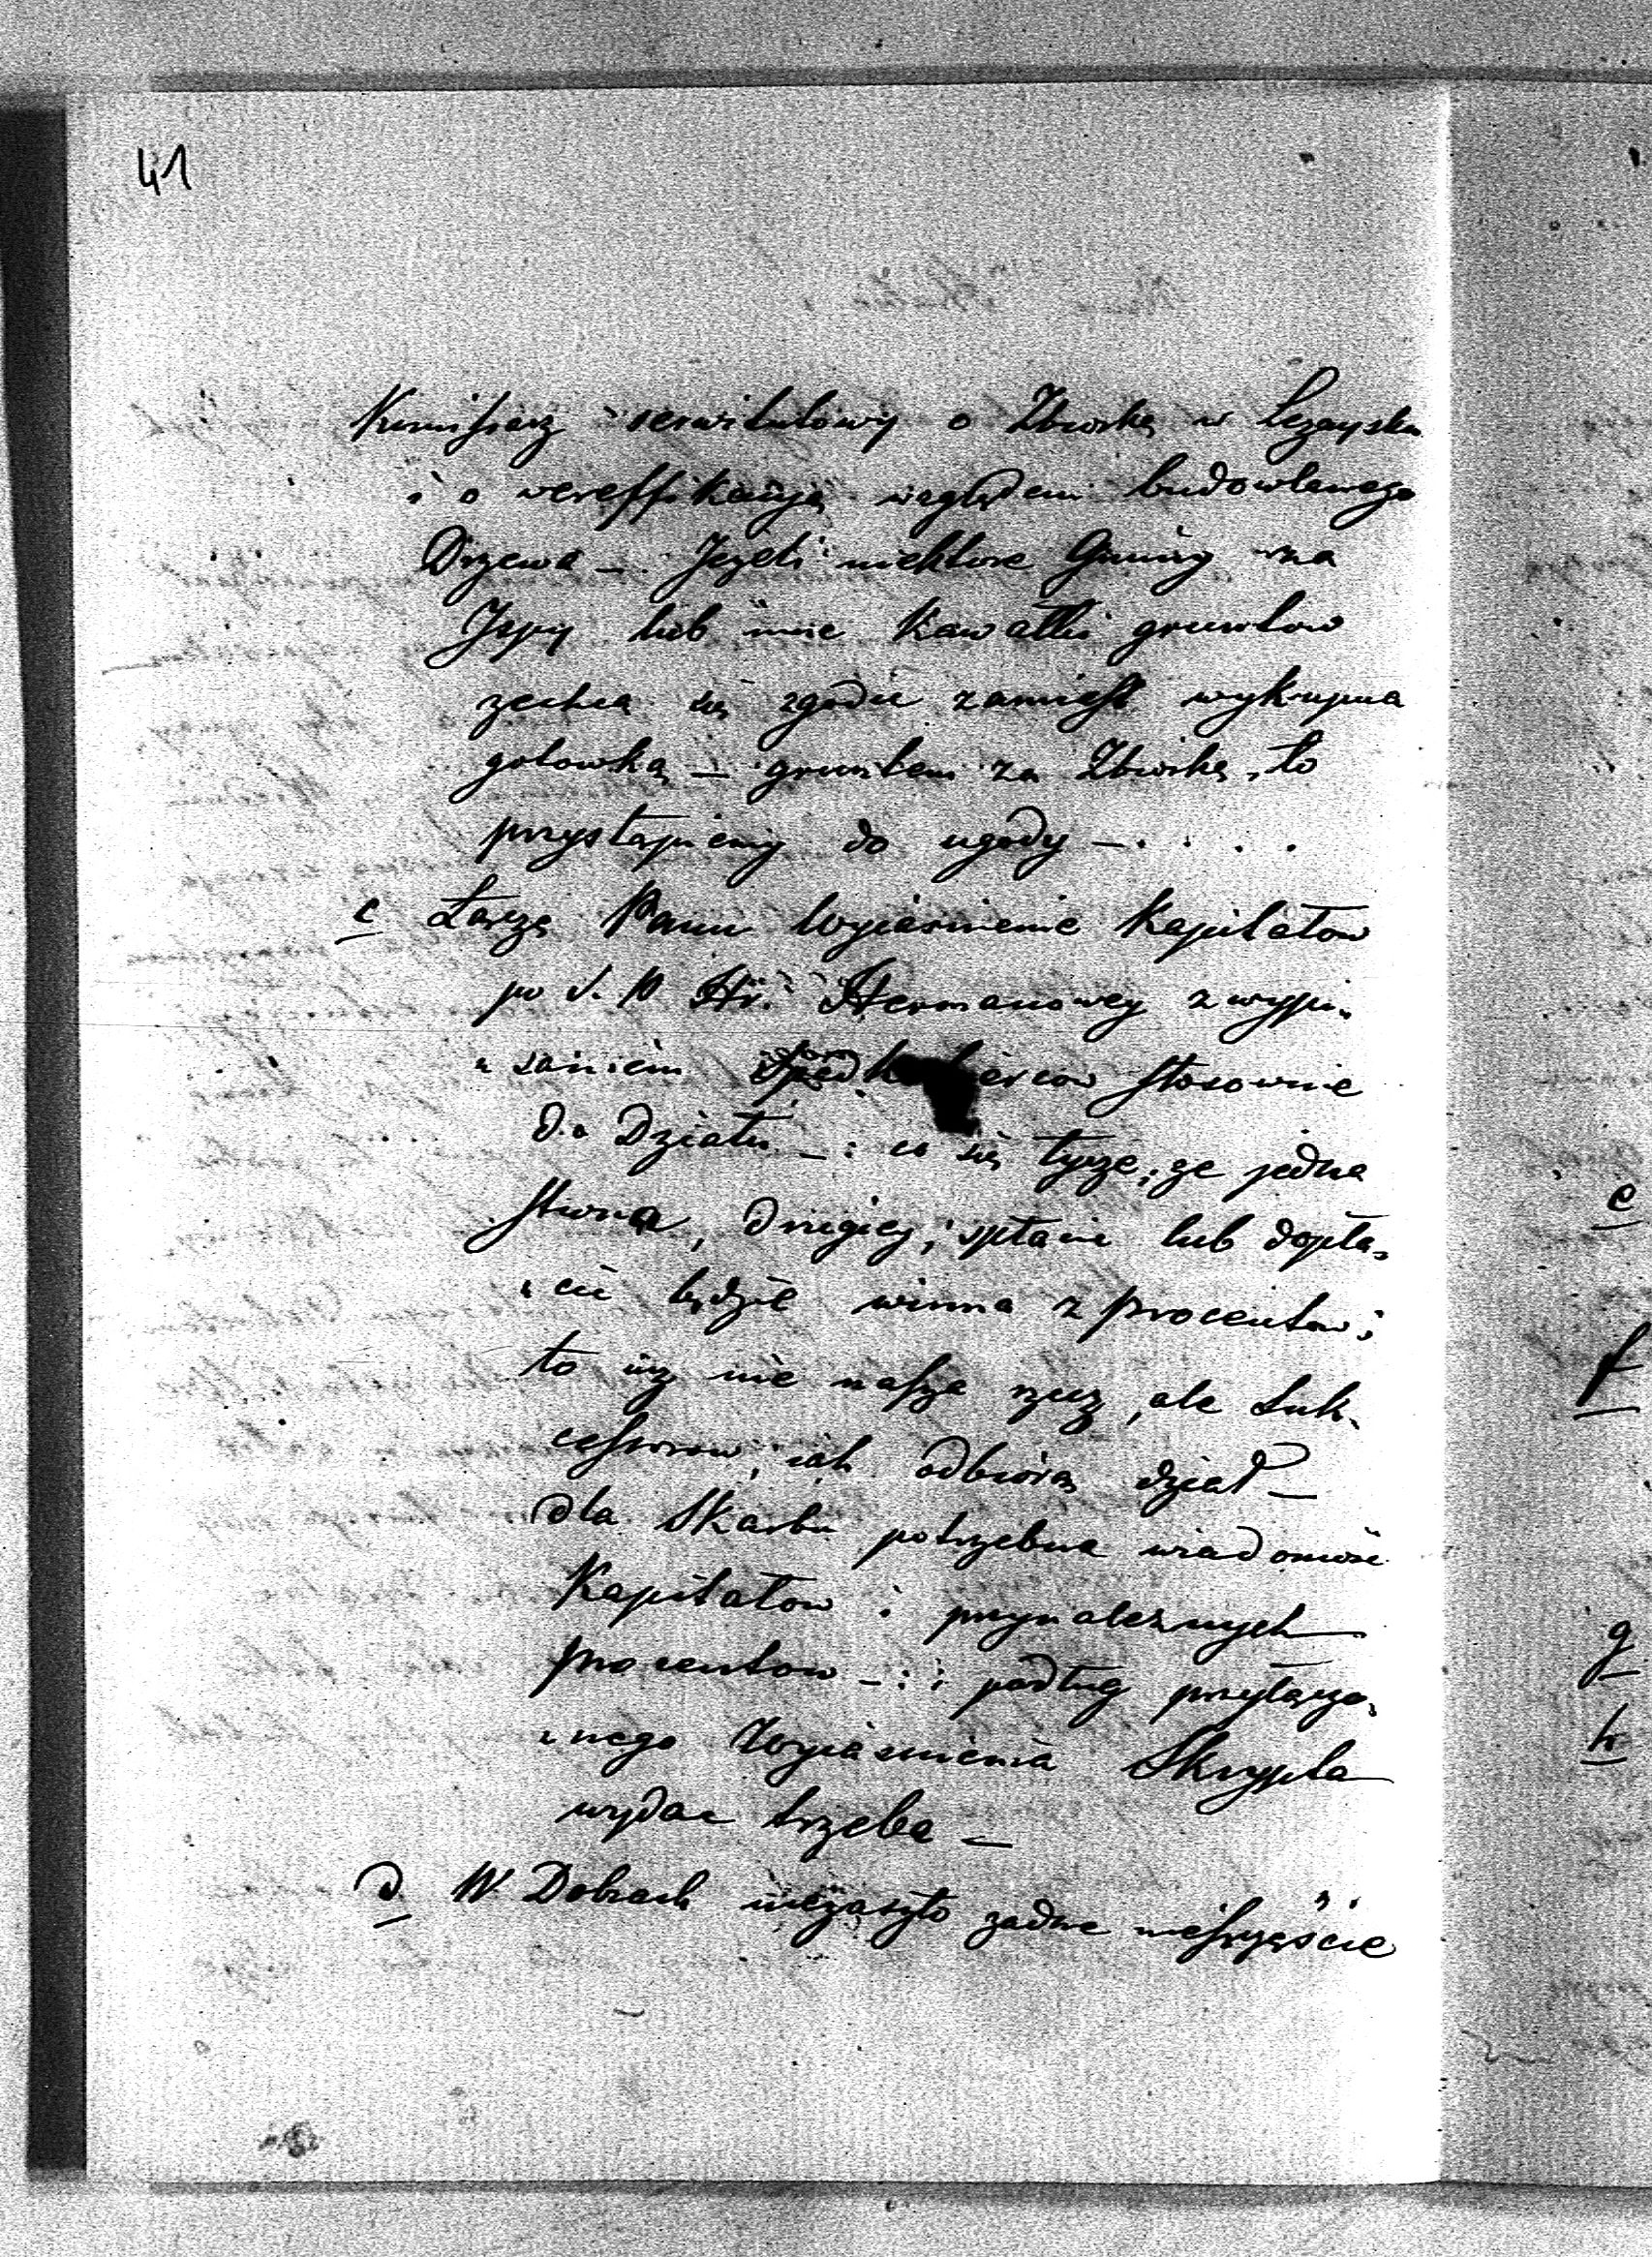 41
Komissarz serwitutowy o Zbiorkę w Leżaysku
i o wereffikacyą względem budowlanego
Drzewa — Jeżeli niektore Gminy na
Jszy lub inne Kawałki gruntow
zechcą się zgodzic zamiast wykupna
gotowką — gruntem za Zbiorkę, to
przystąpiemy do ugody — . . . .
c Łączę Panu Wyiasnienie Kapitałow
po S. P Hr. Hermanowey z wypi„
„saniem Stosownie
do Działu — : co się tycze; że jedna
strona, drugiey; spłacic lub dopła„
„cić będzie winna z procentow;
to iuż nie nasza rzecz, ale Suk„
cessorow, iak odbiorą dział —
dla Skarbu potrzebna wiadomość
Kapitałow i przynależnych
procentow — : i podług przyłączo„
„nego Wyiasnienia Skrypta
wydac trzeba —
d W Dobrach niezaszło żadne niesczęście
e
f
g
h